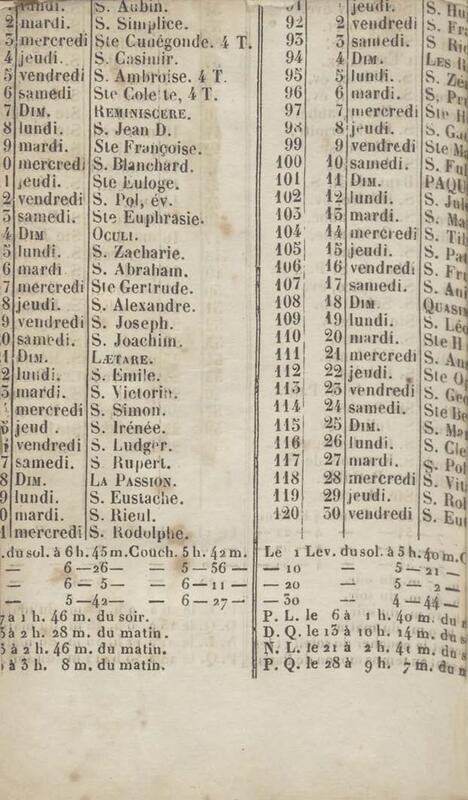 lundi. S. Aubin.
2 mardi. S. Simplice.
3 mercredi Ste Cunégonde. 4 T.
4 jeudi. S. Casimir.
5 vendredi S. Ambroise. 4 T.
6 samedi Ste Colette, 4 T.
7 DIM. REMINISCERE.
8 lundi. S. Jean D.
9 mardi. Ste Françoise.
0 mercredi S. Blanchard.
1 jeudi. Ste Euloge.
2 vendredi S. Pol, év.
3 samedi. Ste Euphrasie.
4 DIM OCULI.
5 lundi. S. Zacharie.
6 mardi S. Abraham.
7 mercredi Ste Gertrude.
8 jeudi. S. Alexandre.
9 vendredi S. Joseph.
0 samedi. S. Joachim.
1 DIM. LÆTARE.
2 lundi. S. Emile.
3 mardi. S. Victorin.
mercredi S. Simon.
5 jeud . S. Irénée.
vendredi S. Ludger.
7 samedi. S Rupert.
8 DIM. LA PASSION.
9 lundi. S. Eustache.
0 mardi. S. Rieul.
1 mercredi S. Rodolphe.
. du sol. à 6 h. 45 m. Couch. 5 h. 42 m.
— 6 —26— — 5 — 56 —
— 6 — 5— — 6 — 11 —
— 5 —42— — 6 — 27 —
7 à 1 h. 46 m. du soir.
5 à 2 h. 28 m. du matin.
5 à 2 h. 46 m. du matin.
à 3 h. 8 m. du matin.
91 1 jeudi. S. Hu
92 2 vendredi S. Fra
93 3 samedi. S Ric
94 4 DIM. LES R
95 5 lundi. S. Ze
96 6 mardi. S. Pr
97 7 mercredi Ste H
98 8 jeudi. S. Ga
99 9 vendredi Ste Ma
100 10 samedi. S. Ful
101 11 DIM. PAQU
102 12 lundi. S. Jule
103 13 mardi. S. Ma
104 14 mercredi S. Tib
105 15 jeudi. S. Pat
106 16 vendredi S. Fru
107 17 samedi. S. Ani
108 18 DIM QUASIM
109 19 lundi. S. Léo
110 20 mardi. Ste H
111 21 mercredi S. An
112 22 jeudi. Ste O
113 23 vendredi S. Geo
114 24 samedi. Ste Be
115 25 DIM. S. Mar
116 26 lundi. S. Cle
117 27 mardi. S. Pol
118 28 mercredi S. Vit
119 29 jeudi. S. Rol
120 30 vendredi S. Eut
Le 1 Lev. du sol. à 5 h. 40 m. C
— 10 — 5 — 21 —
— 20 — 5 — 2 —
— 30 — 4 — 44 —
P. L. le 6 à 1 h. 40 m. du
D. Q. le 13 à 10 h. 14 m. du
N. L. le 21 à 2 h. 41 m. du s
P. Q. le 28 à 9 h. 7 m. du m